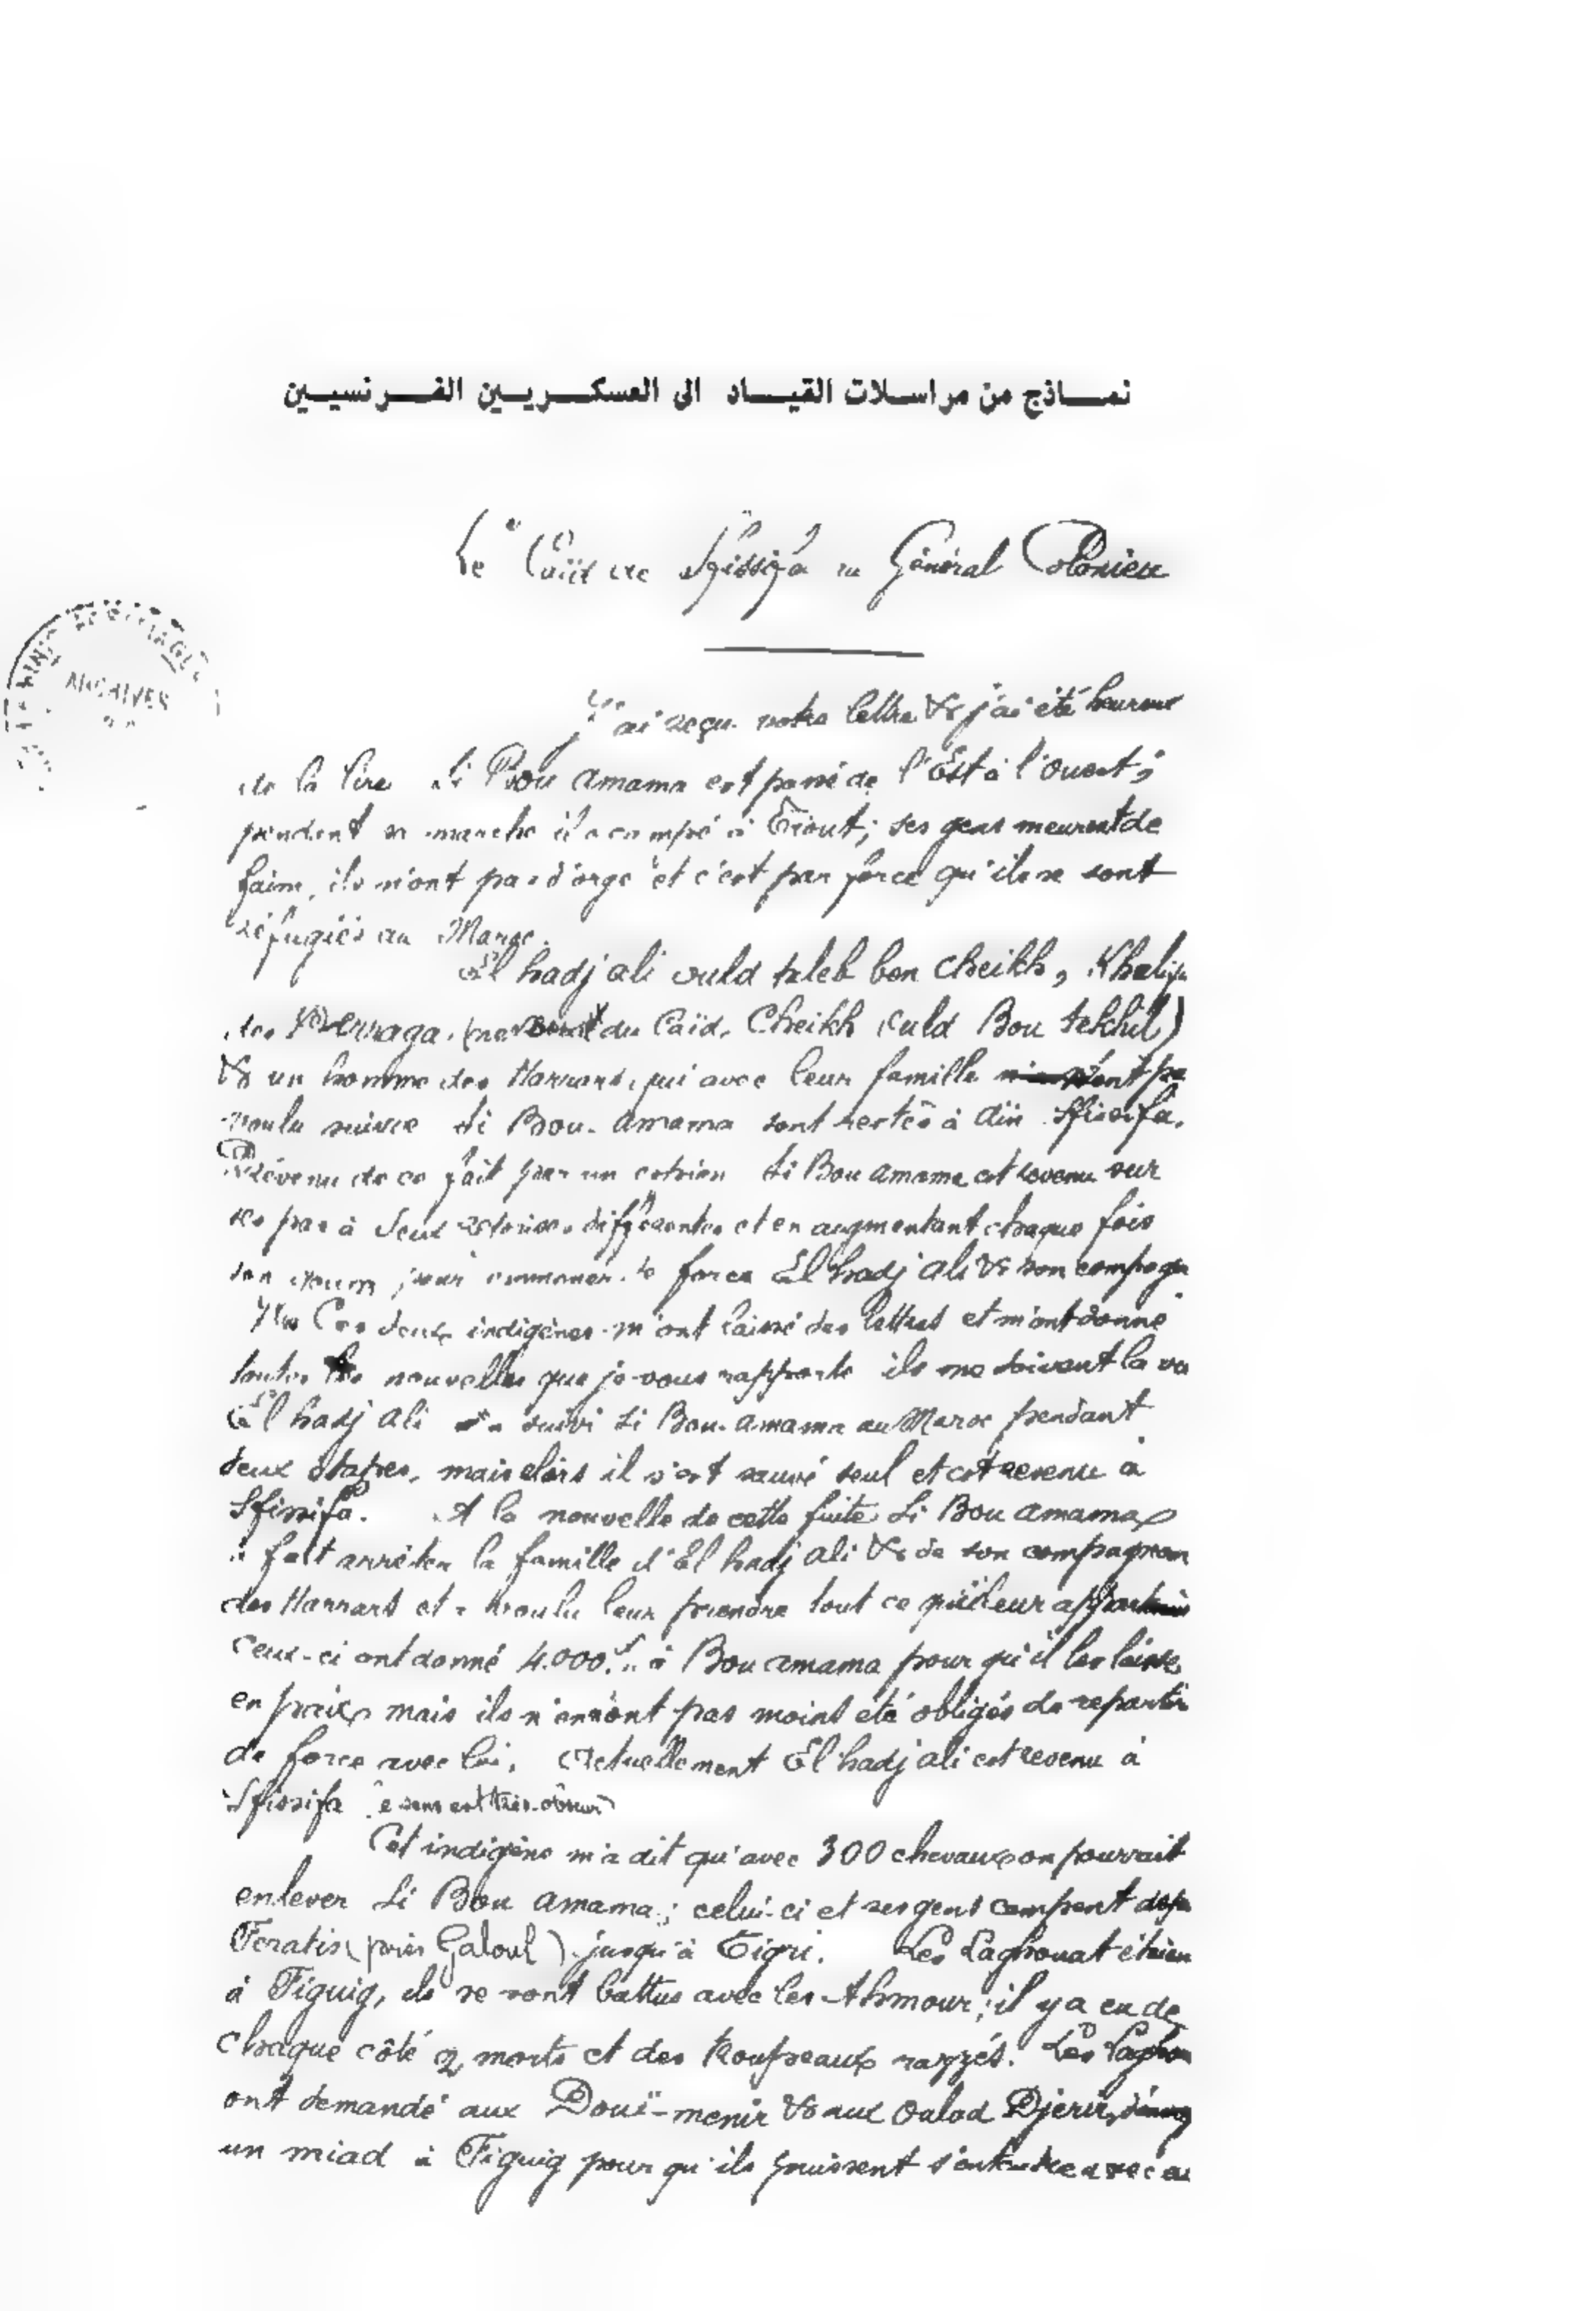 نماذج من مراسلات القياد الى العسكريين الفرنسيين
Le Caïd de Sfissifa au Général Colonieu
ARCHIVES
J'ai reçu votre lettre & j'ai été heureux
de la lire Si Bou amama est passé de l'Est à l'ouest;
pendant sa marche il a campé à Tiout; ses gens meurent de
faim, ils n'ont pas d'orge et c'est par force qu'ils se sont
réfugiés au Maroc.
El hadj ali ould taleb bon cheikh, Khalifa
des du Caïd Cheikh ould Bou tekhil)
& un homme des Harrars, qui avec leur famille n'ont pas
voulu suivre Si Bou-amama sont restés à Aïn Sfissifa.
Prévenu de ce fait par un Si Bou amama est revenu sur
ses pas à deux différentes et en augmentant chaque fois
son goum pour emmener de force El hadj ali & son compagn
Ces deux indigènes m'ont laissé des lettres et m'ont donné
toutes les nouvelles que je vous rapporte ils me doivent la
El hadj ali a suivi Si Bou-amama au Maroc pendant
deux étapes, mais alors il s'est sauvé seul et est revenu à
Sfissifa. A la nouvelle de cette fuite Si Bou amama
a fait arrêter la famille d'El hadj ali & de son compagnon
des Harrars et a voulu leur prendre tout ce qui leur appartenait
Ceux-ci ont donné 4.000f.. à Bou amama pour qu'il les laisse
en paix mais ils n'en ont pas moins été obligés de repartir
de force avec lui. Actuellement El hadj ali est revenu à
Sfissifa (le sens est très obscur)
Cet indigène m'a dit qu'avec 300 chevaux on pourrait
enlever Si Bou amama; celui-ci et ses gens campent
Foratis (près Galoul) jusqu'à Tigri. Les Laghouat étaient
à Figuig, ils se sont battus avec les Ahmour; il y a eu de
chaque côté 2 morts et des troupeaux razzés. Les
ont demandé aux Douï-menir & aux Oulad Djerir,
un miad à Figuig pour qu'ils puissent s'entendre avec eux